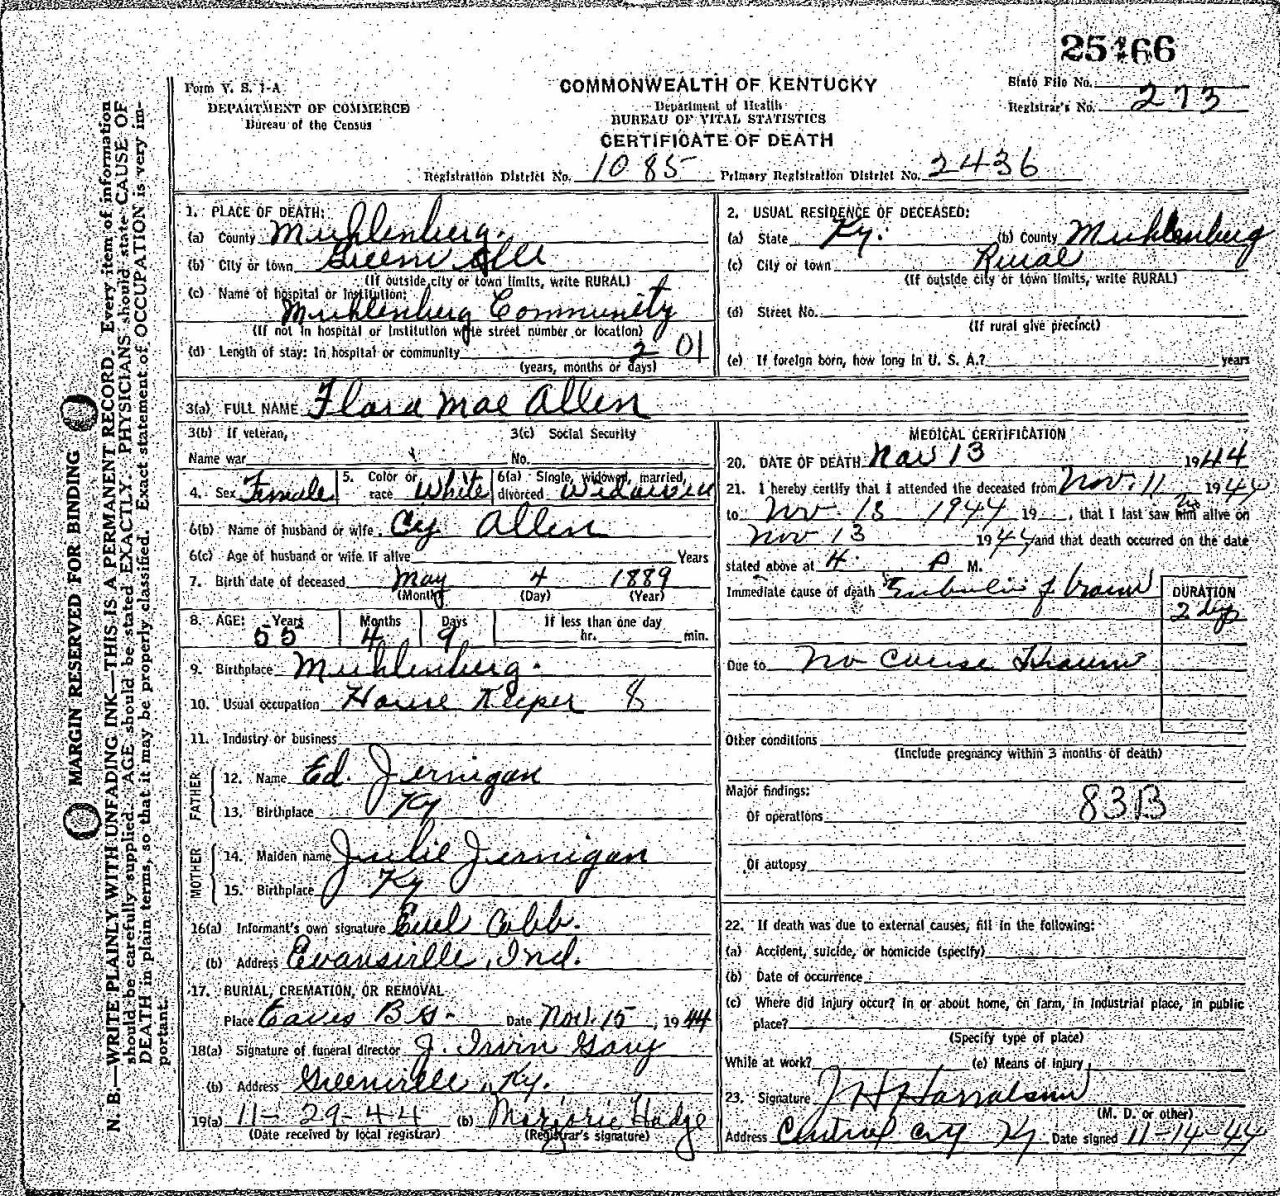 25466
Form V. S. 1-A
DEPARTMENT OF COMMERCE
Bureau of the Census
COMMONWEALTH OF KENTUCKY
Department of Health
BUREAU OF VITAL STATISTICS
CERTIFICATE OF DEATH
State File No.
Registrar's No. 273
Registration District No. 1085 Primary Registration District No. 2436
MARGIN RESERVED FOR BINDING
N. B.—WRITE PLAINLY WITH UNFADING INK—THIS IS A PERMANENT RECORD. Every item of information
should be carefully supplied. AGE should be stated EXACTLY. PHYSICIANS should state CAUSE OF
DEATH in plain terms, so that it may be properly classified. Exact statement of OCCUPATION is very im-
portant.
1. PLACE OF DEATH:
(a) County Muhlenberg.
(b) City or town Greenville
(If outside city or town limits, write RURAL)
(c) Name of hospital or institution:
Muhlenberg Community
(If not in hospital or institution write street number or location)
(d) Length of stay: In hospital or community 2 01
(years, months or days)
2. USUAL RESIDENCE OF DECEASED:
(a) State Ky. (b) County Muhlenberg
(c) City or town Rural
(If outside city or town limits, write RURAL)
(d) Street No.
(If rural give precinct)
(e) If foreign born, how long in U. S. A.? years
3(a) FULL NAME Flora Mae Allen
3(b) If veteran, 3(c) Social Security
Name war No.
4. Sex Female 5. Color or race White 6(a) Single, widowed, married, divorced Widowed
6(b) Name of husband or wife Cy Allen
6(c) Age of husband or wife if alive Years
7. Birth date of deceased May 4 1889
(Month) (Day) (Year)
8. AGE: Years Months Days If less than one day
55 4 9 hr. min.
9. Birthplace Muhlenberg.
10. Usual occupation House Keeper 8
11. Industry or business
FATHER
12. Name Ed. Jernigan
13. Birthplace Ky
MOTHER
14. Maiden name Julie Jernigan
15. Birthplace Ky
16(a) Informant's own signature Euel Cobb.
(b) Address Evansville, Ind.
17. BURIAL, CREMATION, OR REMOVAL
Place Eaves B G. Date Nov. 15, 1944
18(a) Signature of funeral director J. Irvin Gary
(b) Address Greenville, Ky.
19(a) 11-29-44 (b) Marjorie Hodge
(Date received by local registrar) (Registrar's signature)
MEDICAL CERTIFICATION
20. DATE OF DEATH Nov 13 1944
21. I hereby certify that I attended the deceased from Nov. 11 1944
to Nov. 13 1944 19 , that I last saw him alive on
Nov 13 1944 and that death occurred on the date
stated above at 4 P M.
Immediate cause of death Embolis of brain
DURATION
2 dys
Due to No cause Known
Other conditions
(Include pregnancy within 3 months of death)
Major findings:
Of operations 83B
Of autopsy
22. If death was due to external causes, fill in the following:
(a) Accident, suicide, or homicide (specify)
(b) Date of occurrence
(c) Where did injury occur? In or about home, on farm, in industrial place, in public
place?
(Specify type of place)
While at work? (e) Means of injury
23. Signature J H Harralson
(M. D. or other)
Address Central City Ky Date signed 11-14-44